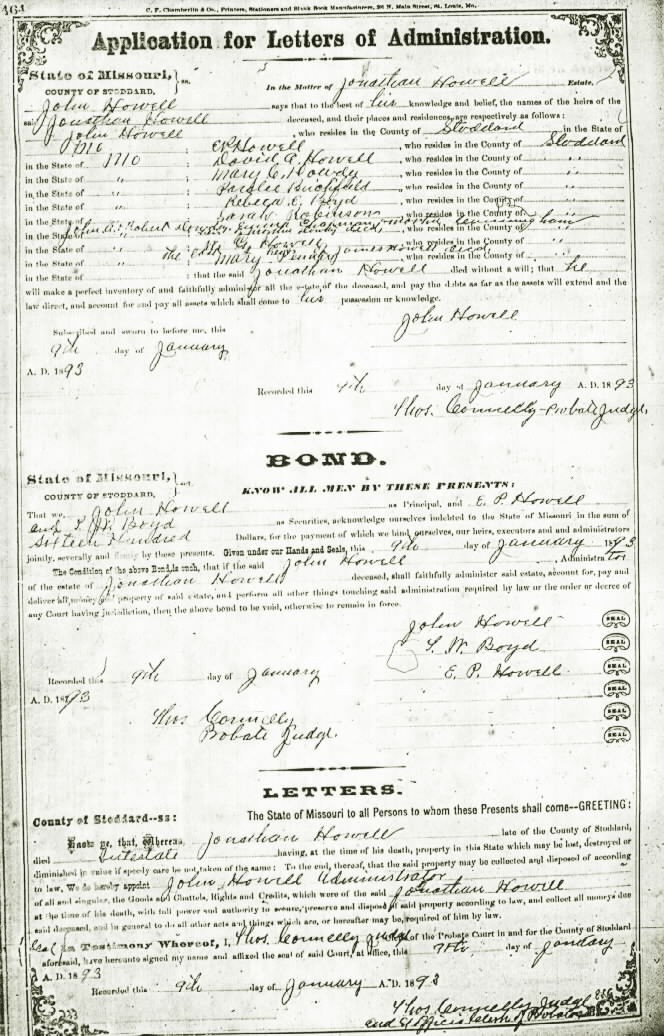 464
C. F. Chamberlin & Co., Printers, Stationers and Blank Book Manufacturers, N. Main Street, St. Louis, Mo.
Application for Letters of Administration.
State of Missouri, } ss.
COUNTY OF STODDARD,
In the Matter of Jonathan Howell Estate,
John Howell says that to the best of his knowledge and belief, the names of the heirs of the
said Jonathan Howell deceased, and their places and residences, are respectively as follows:
John Howell , who resides in the County of Stoddard in the State of
Mo ; E P Howell , who resides in the County of Stoddard
in the State of Mo ; David A. Howell , who resides in the County of "
in the State of " ; Mary C. , who resides in the County of "
in the State of " ; , who resides in the County of "
in the State of " ; Boyd , who resides in the County of "
in the State of " ; Sarah Robinson , who resides in the County of
in the State of " ; , who resides in the County of "
in the State of " ; Howell , who resides in the County of "
in the State of " the Mary James Howell , who resides in the County of "
in the State of ; that the said Jonathan Howell died without a will; that he
will make a perfect inventory of and faithfully administer all the estate of the deceased, and pay the debts as far as the assets will extend and the
law direct, and account for and pay all assets which shall come to his possession or knowledge.
John Howell
Subscribed and sworn to before me, this
9th day of January
A. D. 1893
Recorded this 9th day of January A. D. 1893
Thos. Connelly - Probate Judge,
BOND.
State of Missouri, } ss.
COUNTY OF STODDARD,
KNOW ALL MEN BY THESE PRESENTS:
That we, John Howell as Principal, and E. P. Howell
and L. W. Boyd as Securities, acknowledge ourselves indebted to the State of Missouri in the sum of
Sixteen Hundred Dollars, for the payment of which we bind ourselves, our heirs, executors and administrators
jointly, severally and firmly by these presents. Given under our Hands and Seals, this 9th day of January 1893
The Condition of the above Bond is such, that if the said John Howell , Administrator
of the estate of Jonathan Howell deceased, shall faithfully administer said estate, account for, pay and
deliver all money and property of said estate, and perform all other things touching said administration required by law or the order or decree of
any Court having jurisdiction, then the above bond to be void, otherwise to remain in force.
John Howell SEAL
L. W. Boyd SEAL
E. P. Howell SEAL
SEAL
SEAL
SEAL
Recorded this 9th day of January
A. D. 1893
Thos Connelly
Probate Judge.
LETTERS.
County of Stoddard--ss:
The State of Missouri to all Persons to whom these Presents shall come--GREETING:
Know ye, that, Whereas, Jonathan Howell late of the County of Stoddard,
died Intestate having, at the time of his death, property in this State which may be lost, destroyed or
diminished in value if speedy care be not taken of the same: To the end, thereof, that the said property may be collected and disposed of according
to law, We do hereby appoint John Howell Administrator
of all and singular, the Goods and Chattels, Rights and Credits, which were of the said Jonathan Howell
at the time of his death, with full power and authority to secure, preserve and dispose of said property according to law, and collect all moneys due
said deceased, and in general to do all other acts and things which are, or hereafter may be, required of him by law.
In Testimony Whereof, I, Thos. Connelly Judge of the Probate Court in and for the County of Stoddard
aforesaid, have hereunto signed my name and affixed the seal of said Court, at office, this 9th day of January
A. D. 1893
Recorded this 9th day of January A. D. 1893
Thos Connelly Judge
and Ex Officio Clerk of Probate